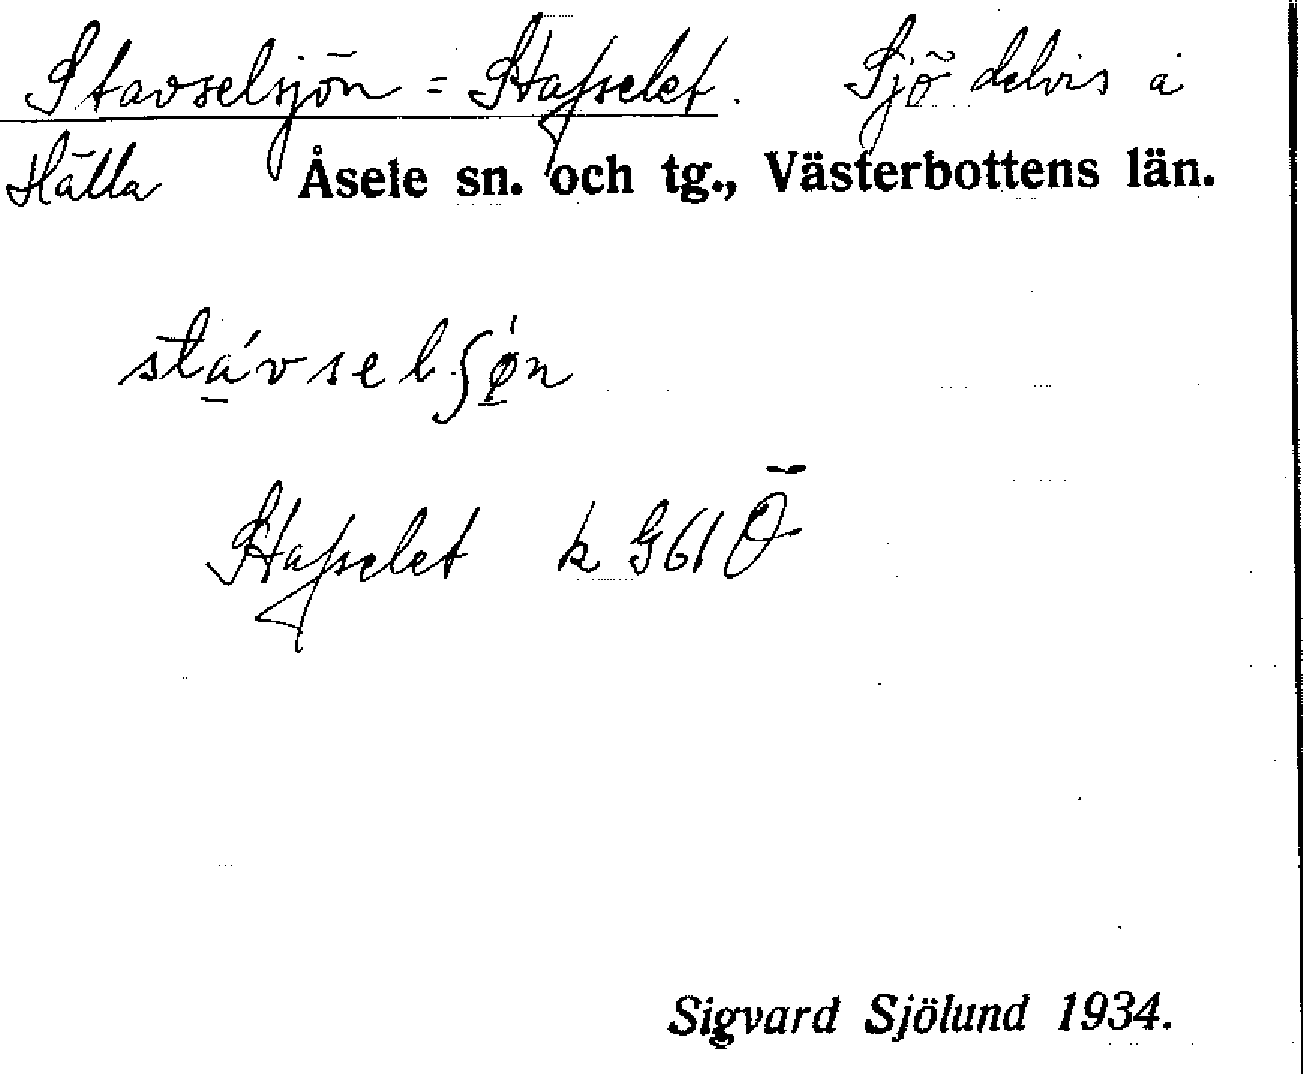 Stavselsjön = Stafselet. Sjö delvis å
Hälla Åsele sn. och tg., Västerbottens län.
stávselʃǿ̱n
Stafselet k G61 Ö
Sigvard Sjölund 1934.